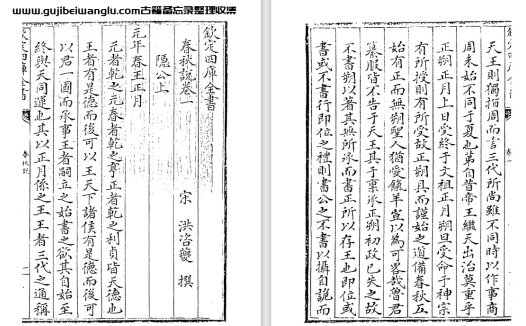 www.gujibeiwanglu.com古籍备忘录整理收集
欽定四庫全書
春秋說卷一
宋 洪咨夔 撰
隱公上
元年春王正月
元者乾之元春者乾之亨正者乾之利貞皆天德也
王者有是德而後可以王天下諸侯有是德而後可
以君一國而承事王者嗣立之始書之欲其自始至
終與天同運也其以正月係之王王者三代之通稱
天王則獨指周而言三代所尚雖不同時以作事商
周未始不同于夏也第自昔帝王繼天出治莫重乎
正朔正月上日受終于文祖正月朔旦受命于神宗
有所授則有所受故正朔具而謹始之道備春秋五
始有正而無朔聖人猶愛餼羊豈以為可畧哉魯君
纂服皆不告于天王其于稟承正朔初政已失之故
不書朔以著其無所承而書正所以存王也即位或
書或不書行即位之禮則書公之不書以攝自詭而